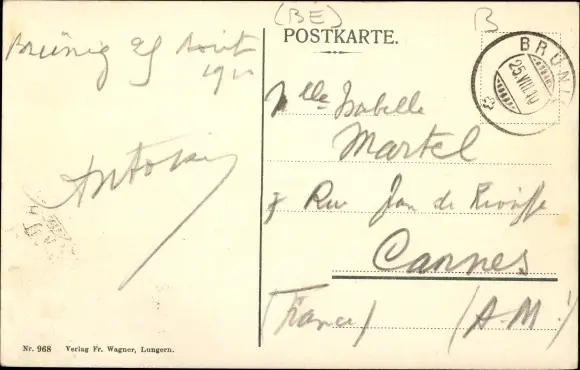 (BE)
B
POSTKARTE.
Brünig 25 Août
1910
BRÜNI
25.VIII.10
Mlle Isabelle
Martel
Rue Jan de
Cannes
(France) (A-M!)
Antoin
Nr. 968 Verlag Fr. Wagner, Lungern.